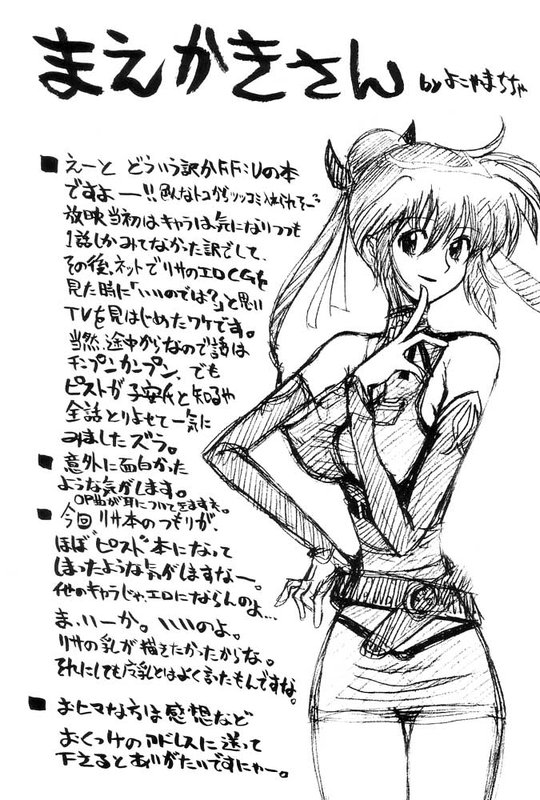 まえかきさん
by よこやまちちゃ
■えーと どういう訳かFF:Uの本
ですよー!!(みんなトコからツッコミ入れられそー)
放映当初はキャラは気になりつつも
1話しかみてなかった訳でして、
その後、ネットでリサのエロCGを
見た時に「いいのでは?」と思い
TVを見はじめたワケです。
当然、途中からなので話は
チンプンカンプン。でも
ピストが子安氏と知るや
全話とりよせて一気に
みましたズラ。
■意外に面白かった
ような気がします。
OP曲が耳について きますネ。
■今回リサ本のつもりが、
ほぼ"ピスト"本になって
しまったような気がしますなー。
他のキャラじゃ、エロにならんのよ…
ま、いーか。いいのよ。
リサの乳が描きたかったからな。
それにしても 乳とはよく言ったもんですな。
■おヒマな方は感想など
おくづけのアドレスに送って
下さるとありがたいですにゃー。